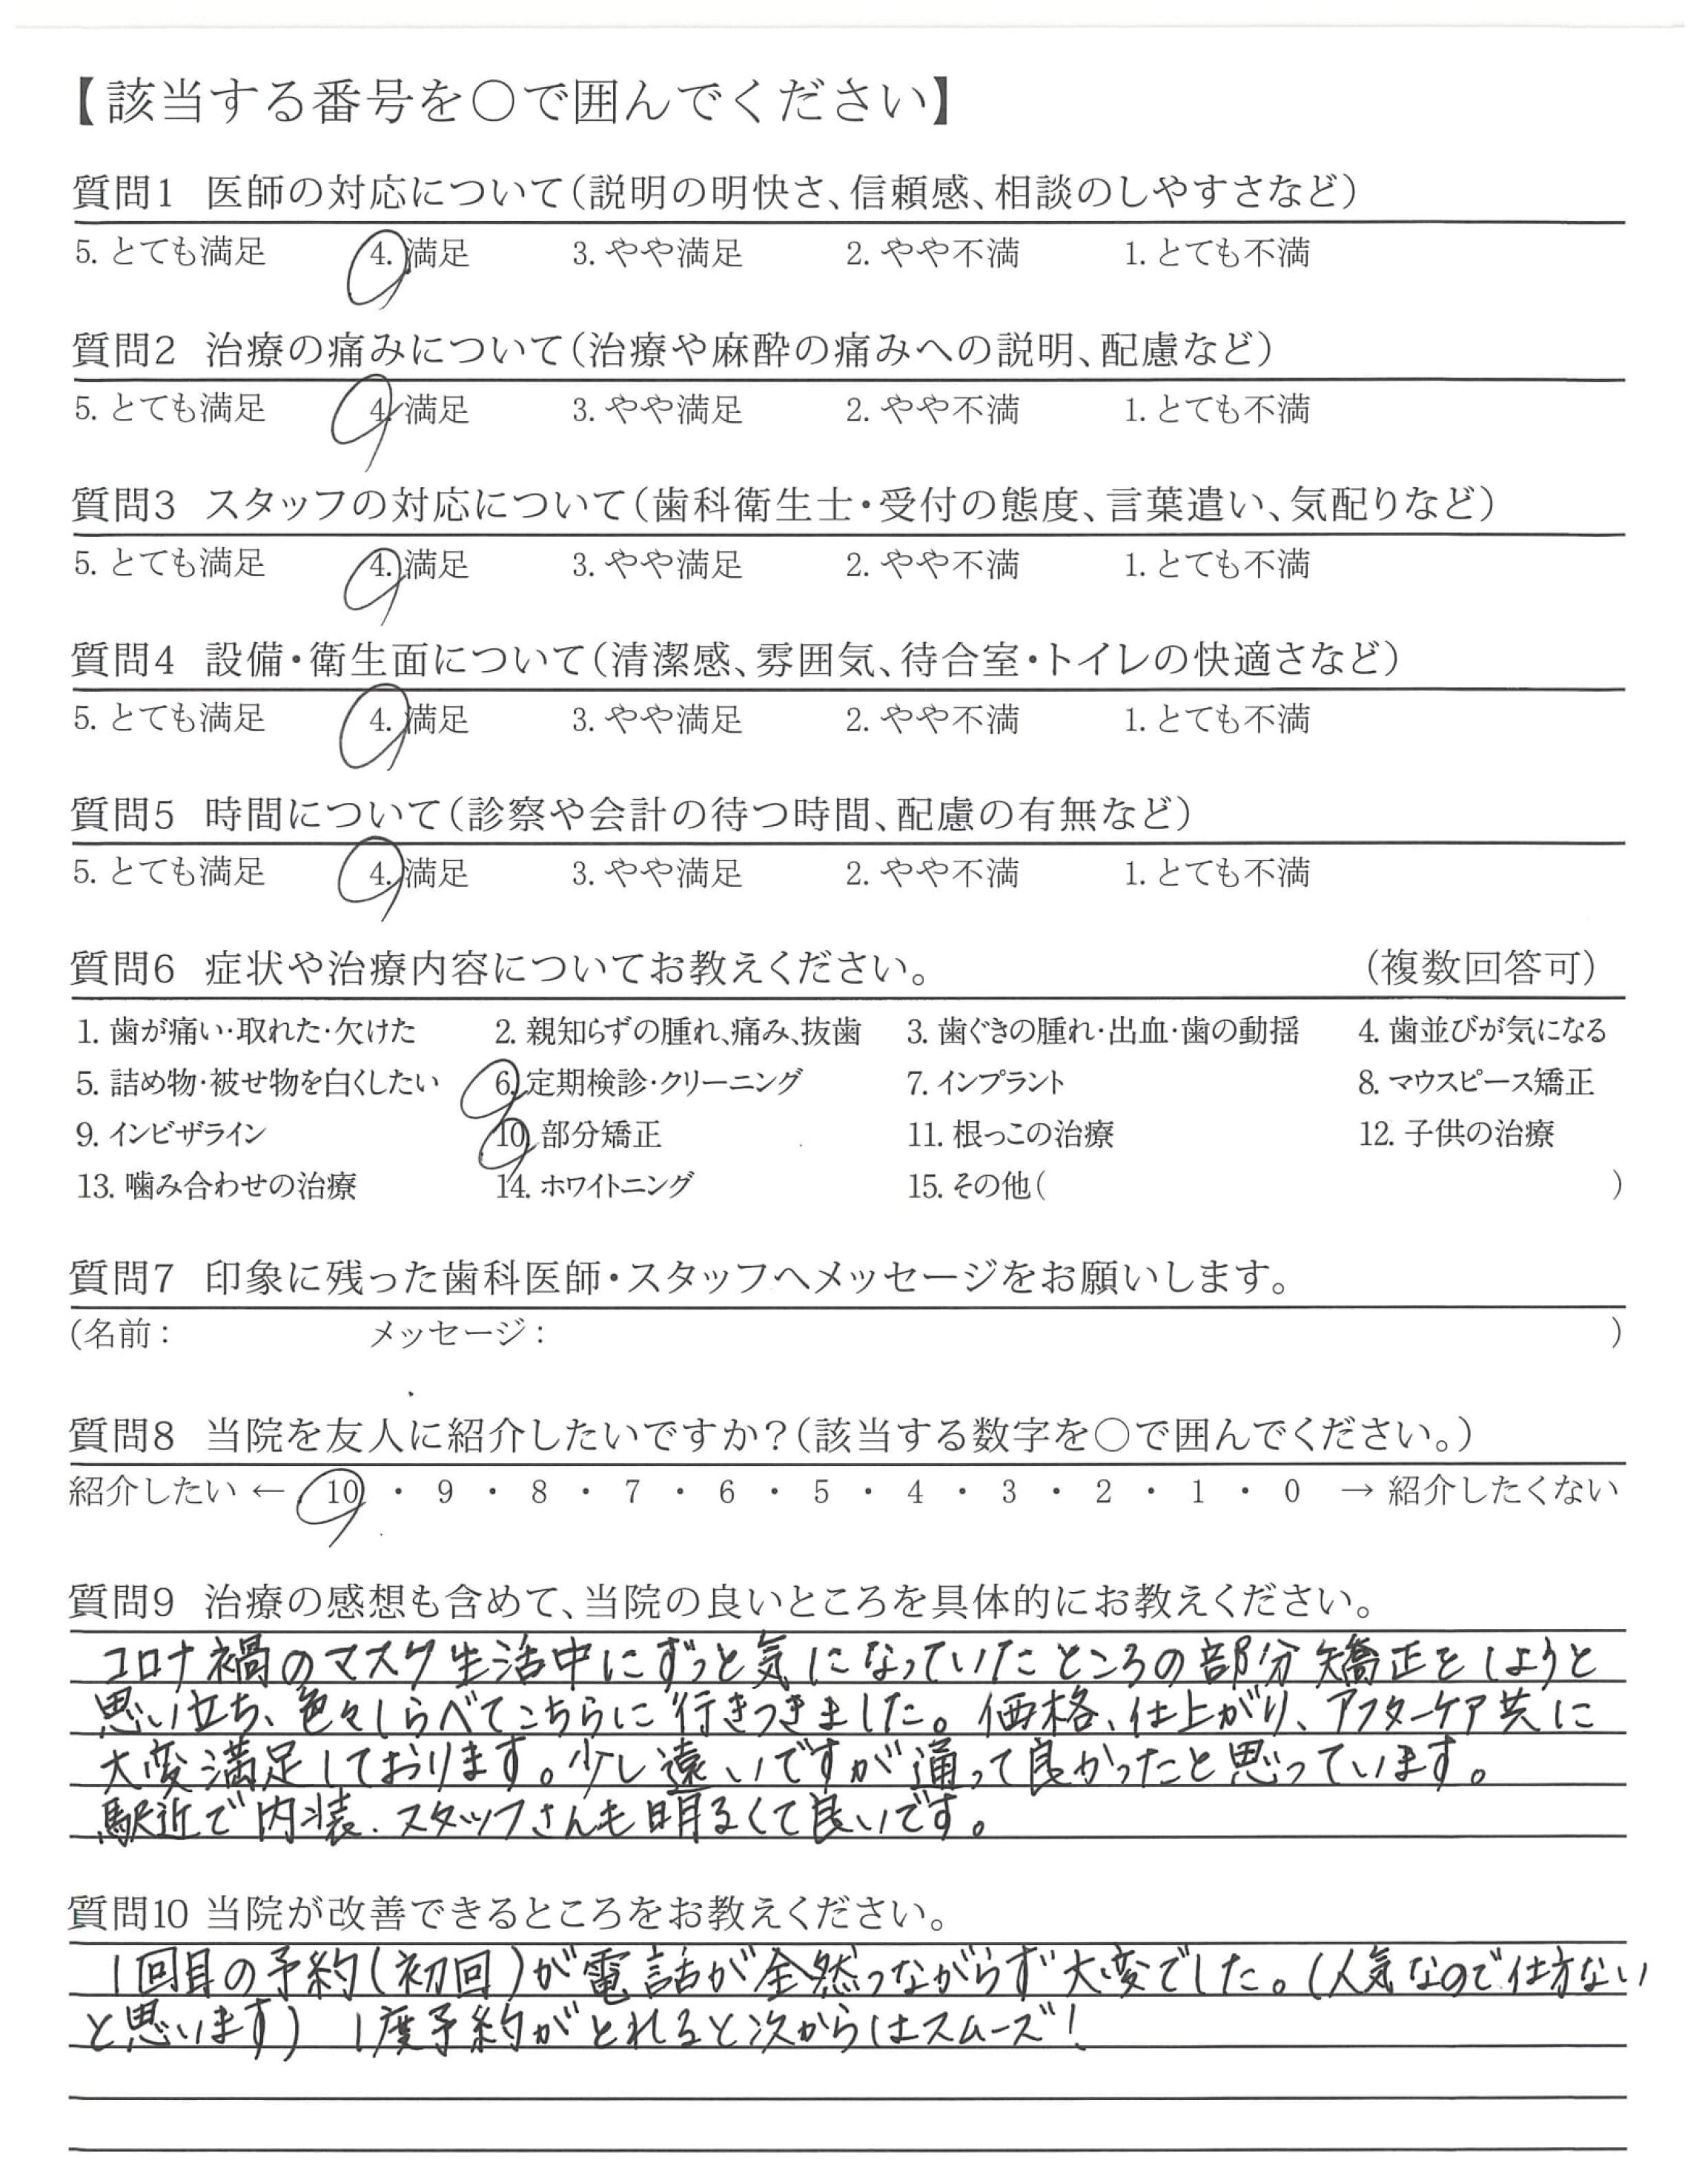 【該当する番号を〇で囲んでください】
質問1 医師の対応について(説明の明快さ、信頼感、相談のしやすさなど)
5. とても満足 4. 満足 3. やや満足 2. やや不満 1. とても不満
質問2 治療の痛みについて(治療や麻酔の痛みへの説明、配慮など)
5. とても満足 4. 満足 3. やや満足 2. やや不満 1. とても不満
質問3 スタッフの対応について(歯科衛生士・受付の態度、言葉遣い、気配りなど)
5. とても満足 4. 満足 3. やや満足 2. やや不満 1. とても不満
質問4 設備・衛生面について(清潔感、雰囲気、待合室・トイレの快適さなど)
5. とても満足 4. 満足 3. やや満足 2. やや不満 1. とても不満
質問5 時間について(診察や会計の待つ時間、配慮の有無など)
5. とても満足 4. 満足 3. やや満足 2. やや不満 1. とても不満
質問6 症状や治療内容についてお教えください。 (複数回答可)
1. 歯が痛い・取れた・欠けた 2. 親知らずの腫れ、痛み、抜歯 3. 歯ぐきの腫れ・出血・歯の動揺 4. 歯並びが気になる
5. 詰め物・被せ物を白くしたい 6. 定期検診・クリーニング 7. インプラント 8. マウスピース矯正
9. インビザライン 10. 部分矯正 11. 根っこの治療 12. 子供の治療
13. 噛み合わせの治療 14. ホワイトニング 15. その他( )
質問7 印象に残った歯科医師・スタッフへメッセージをお願いします。
(名前: メッセージ: )
質問8 当院を友人に紹介したいですか?(該当する数字を〇で囲んでください。)
紹介したい ← 10 ・ 9 ・ 8 ・ 7 ・ 6 ・ 5 ・ 4 ・ 3 ・ 2 ・ 1 ・ 0 → 紹介したくない
質問9 治療の感想も含めて、当院の良いところを具体的にお教えください。
コロナ禍のマスク生活中にずっと気になっていたところの部分矯正をしようと
思い立ち、色々しらべてこちらに行きつきました。価格、仕上がり、アフターケア共に
大変満足しております。少し遠いですが通って良かったと思っています。
駅近で内装、スタッフさんも明るくて良いです。
質問10 当院が改善できるところをお教えください。
1回目の予約(初回)が電話が全然つながらず大変でした。(人気なので仕方ない
と思います) 1度予約がとれると次からはスムーズ!